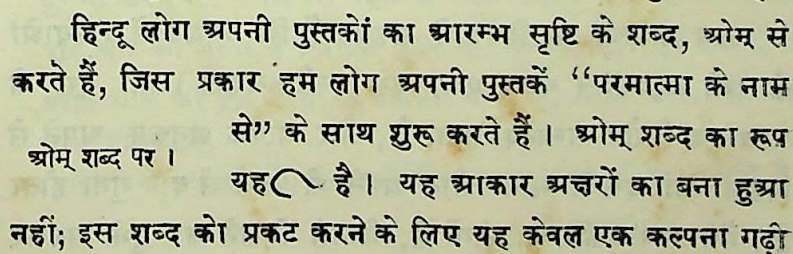 हिन्दू लोग अपनी पुस्तकों का आरम्भ सृष्टि के शब्द, ओम् से
करते हैं, जिस प्रकार हम लोग अपनी पुस्तकें “परमात्मा के नाम
से” के साथ शुरू करते हैं। ओम् शब्द का रूप
ओम् शब्द पर।
यह है। यह आकार अक्षरों का बना हुआ
नहीं; इस शब्द को प्रकट करने के लिए यह केवल एक कल्पना गढ़ी